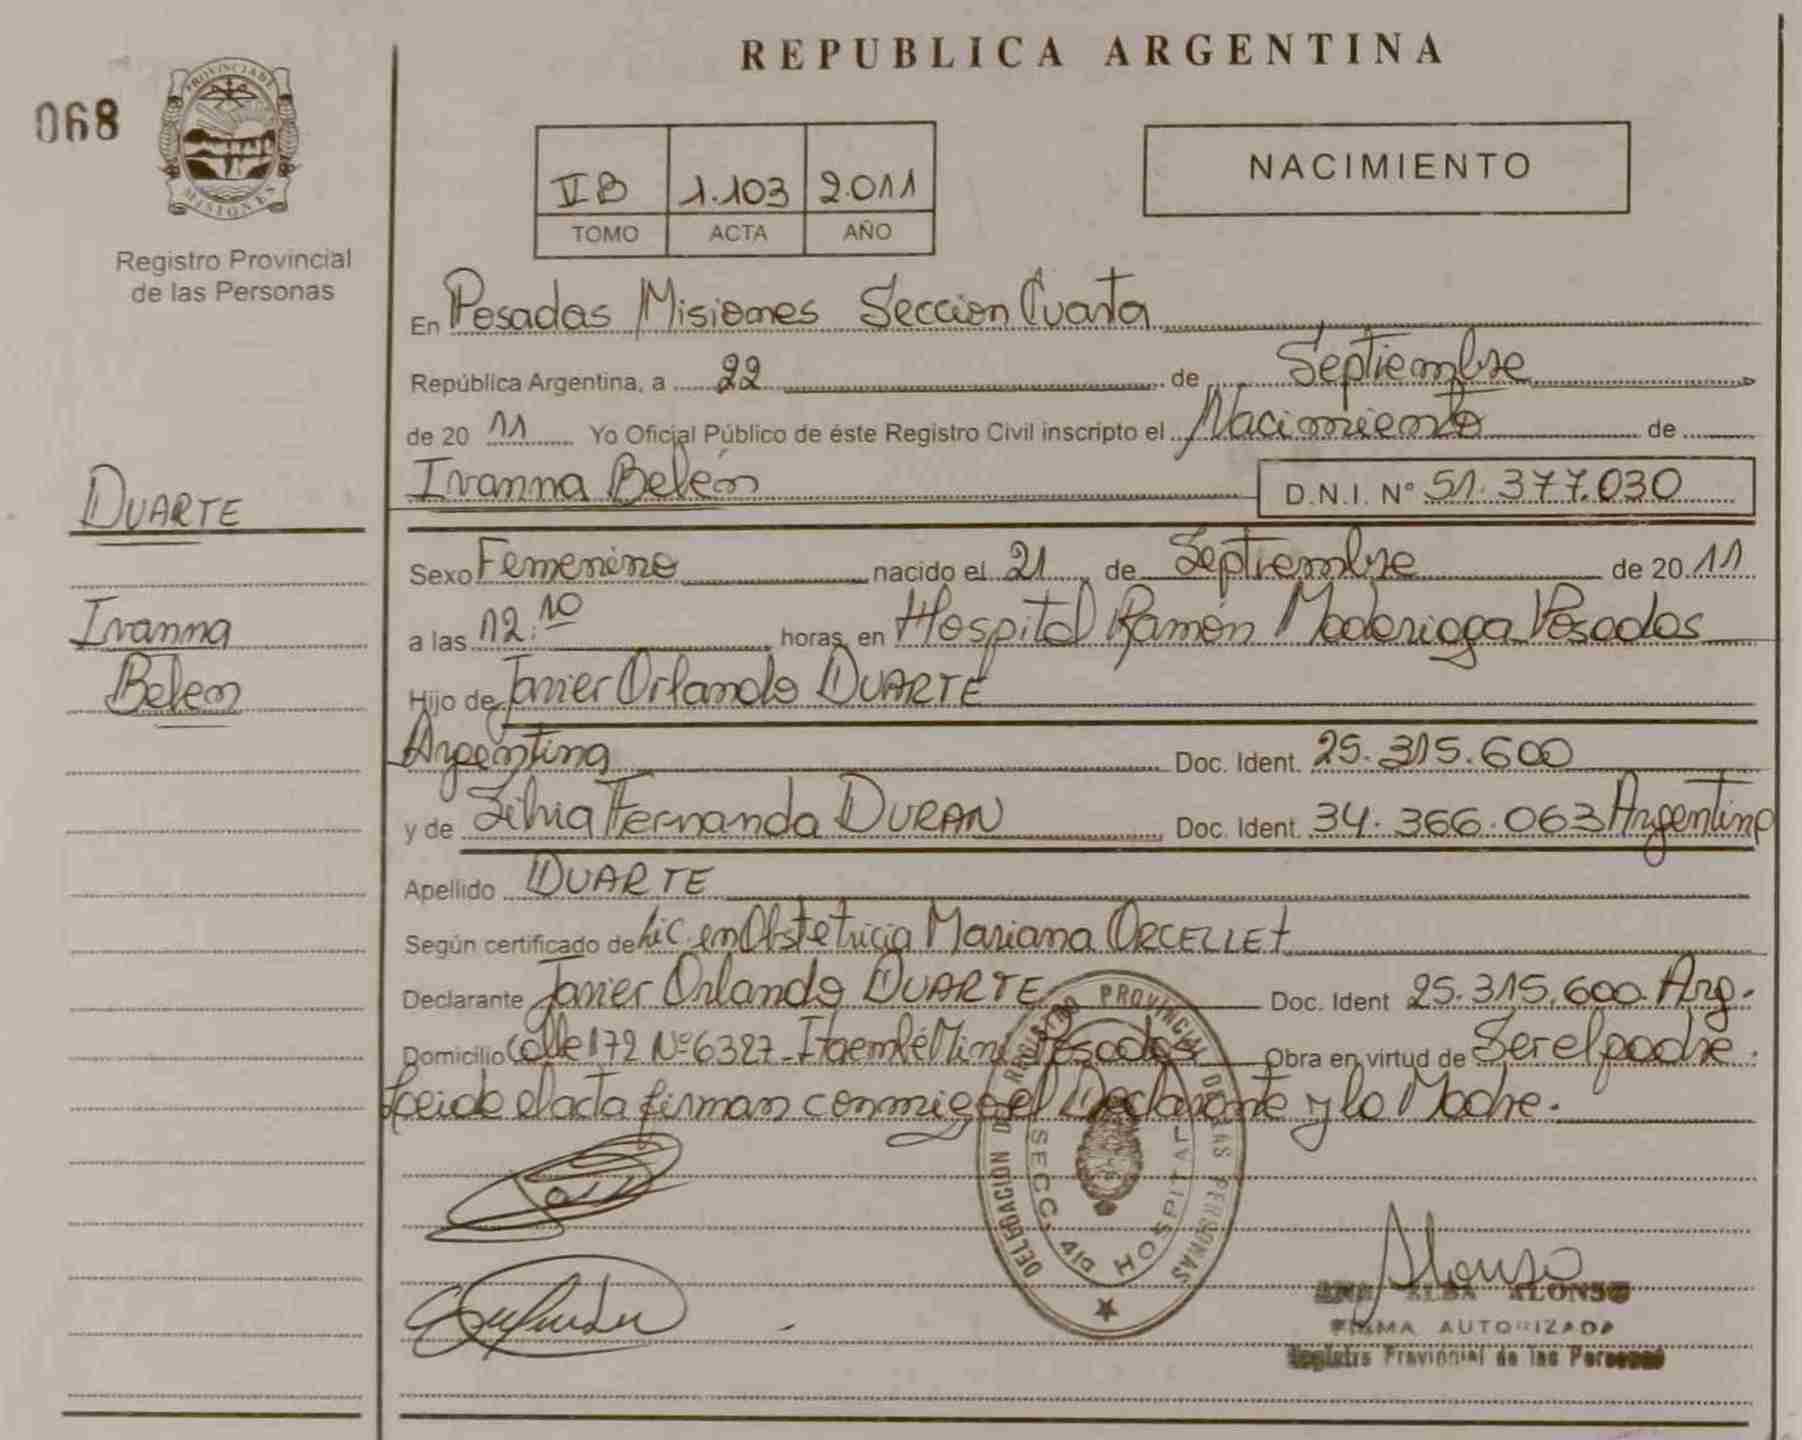 REPUBLICA ARGENTINA
068
PROVINCIA DE
MISIONES
Registro Provincial
de las Personas
VB 1.103 2.011
TOMO ACTA AÑO
NACIMIENTO
En Posadas Misiones Seccion Cuarta
República Argentina, a 22 de Septiembre
de 20 11 Yo Oficial Público de éste Registro Civil inscripto el Nacimiento de
Ivanna Belén D.N.I. Nº 51.377.030
DUARTE
Ivanna
Belen
Sexo Femenino nacido el 21 de Septiembre de 20 11
a las 12:10 horas, en Hospital Ramón Madariaga Posadas
Hijo de Javier Orlando DUARTE
Argentina Doc. Ident. 25.315.600
y de Silvia Fernanda DURAN Doc. Ident. 34.366.063 Argentina
Apellido DUARTE
Según certificado de Lic. en Obstetricia Mariana ORCELLEt
Declarante Javier Orlando DUARTE Doc. Ident 25.315.600 Arg.
Domicilio Calle 172 Nº 6327 - Itaembé Mini Posadas Obra en virtud de Ser el padre.
Leida el acta firman conmigo el Declarante y la Madre.
DELEGACION DE REGISTRO PROVINCIAL DE LAS PERSONAS
SECC. 4ta HOSPITAL
Alonso
ANA ELBA ALONSO
FIRMA AUTORIZADA
Registro Provincial de las Personas